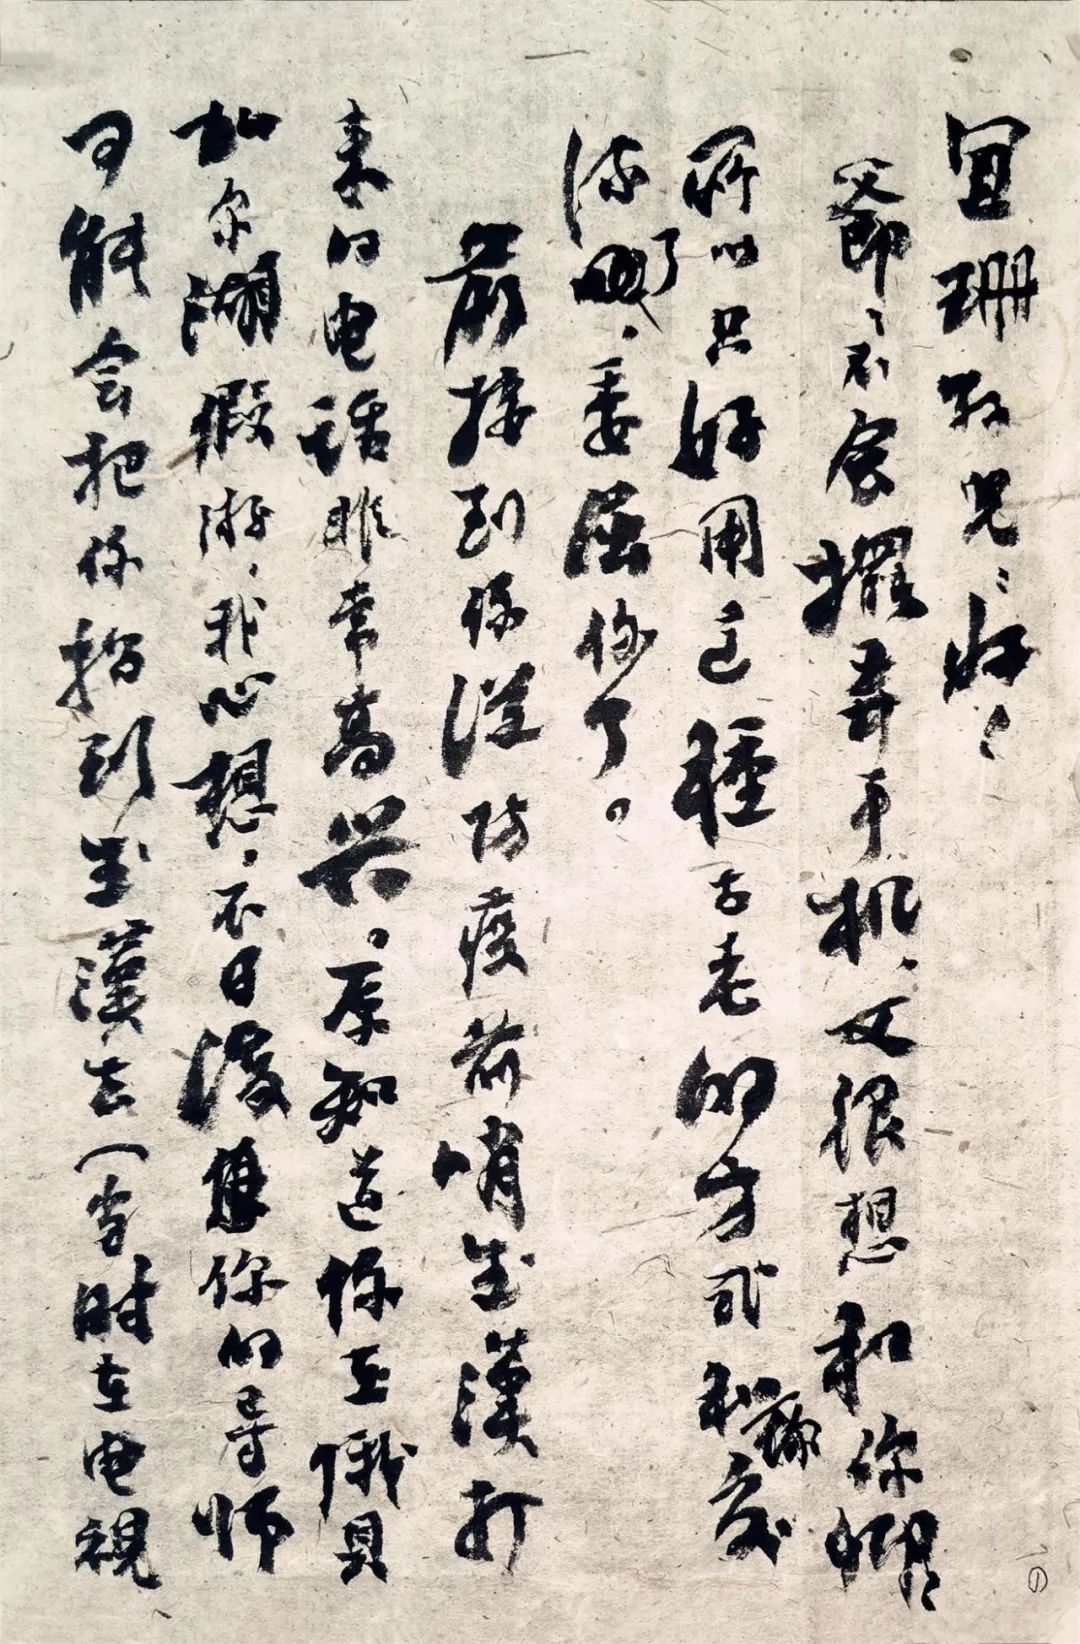 宜珊孙兒：好！
爷爷不会摆弄手机，又很想和你聊聊
所以只好用这種古老的方式和你交
流了，委屈你了。
前接到你從防疫前哨武漢打
来的电话非常高兴。原知道你在俄貝
加尔湖假游，我心想，不日後随你的导师
可能会把你招到武漢去（当时在电視
①